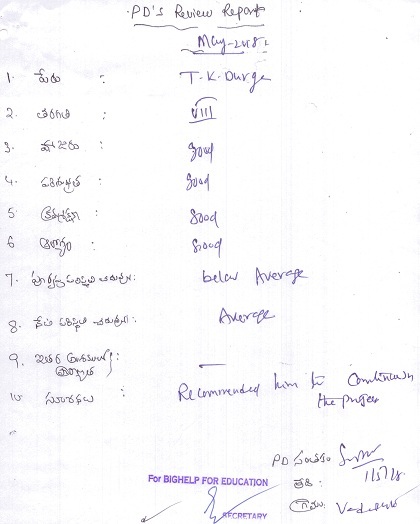 PD's Review Report
May-2018
1. పేరు : T. K. Durga
2. తరగతి : VIII
3. హాజరు : Good
4. పరిశుభ్రత : Good
5. క్రమశిక్షణ : Good
6. ఆరోగ్యం : Good
7. below Average
8. Average
9. ఇతర —
10. సూచనలు : Recommended him to Continue in
the project
PD సంతకం
తేది : 1/5/18
గ్రామం
For BIGHELP FOR EDUCATION
SECRETARY